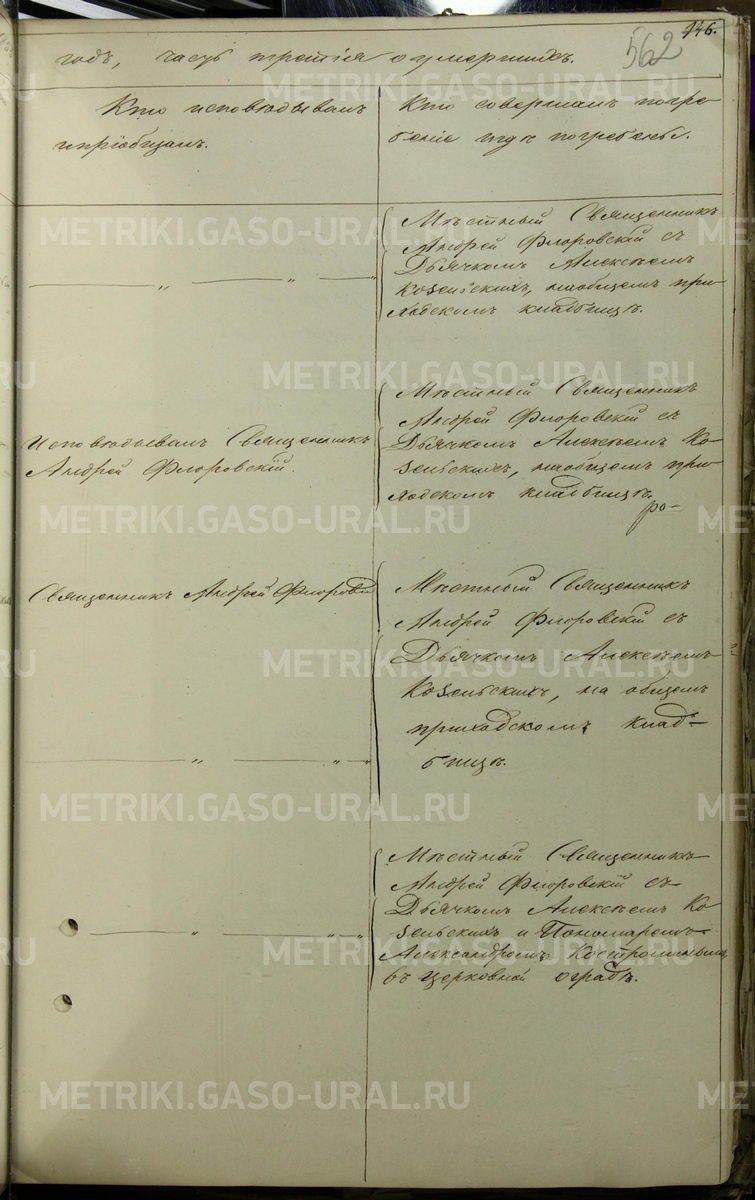 146.
562
годъ, часть третія о умершихъ.
Кто исповѣдывалъ
и пріобщалъ.
Кто совершалъ погре
беніе и гдѣ погребены.
Мѣстный Священникъ
Андрей Флоровскій съ
Дьячкомъ Алексѣемъ
Козельскихъ, на общемъ при
ходскомъ кладбищѣ.
Исповѣдывалъ Священникъ
Андрей Флоровскій.
Мѣстный Священникъ
Андрей Флоровскій съ
Дьячкомъ Алексѣемъ Ко
зельскихъ, на общемъ при
ходскомъ кладбищѣ.
Священникъ Андрей Флоровскій
Мѣстный Священникъ
Андрей Флоровскій съ
Дьячкомъ Алексѣемъ
Козельскихъ, на общемъ
приходскомъ клад-
бищѣ.
Мѣстный Священникъ
Андрей Флоровскій съ
Дьячкомъ Алексѣемъ Ко
зельскихъ и Пономаремъ
Александромъ Костроминымъ
въ церковной оградѣ.
METRIKI.GASO-URAL.RU
METRIKI.GASO-URAL.RU
METRIKI.GASO-URAL.RU
METRIKI.GASO-URAL.RU
METRIKI.GASO-URAL.RU
METRIKI.GASO-URAL.RU
METRIKI.GASO-URAL.RU
METRIKI.GASO-URAL.RU